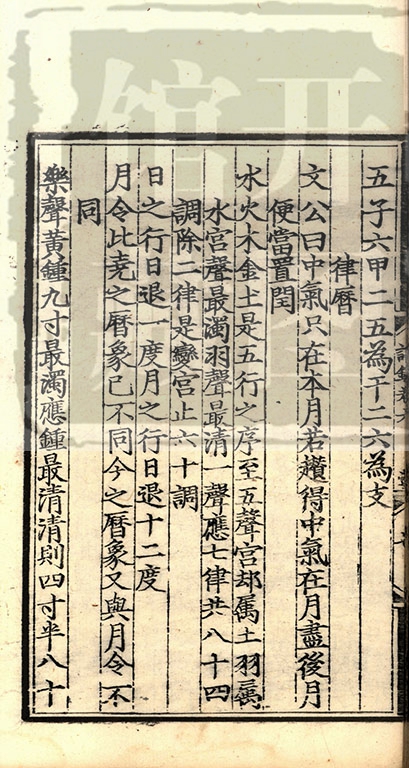 五子六甲二五為干二六為支
律曆
文公曰中氣只在本月若趲得中氣在月盡後月
便當置閏
水火木金土是五行之序至五聲宮却属土羽属
水宮聲最濁羽聲最清一聲應七律共八十四
調除二律是變宮止六十調
日之行日退一度月之行日退十二度
月令此尭之曆象已不同今之曆象又與月令不
同
樂聲黃鍾九寸最濁應鍾最清清則四寸半八十
開
館